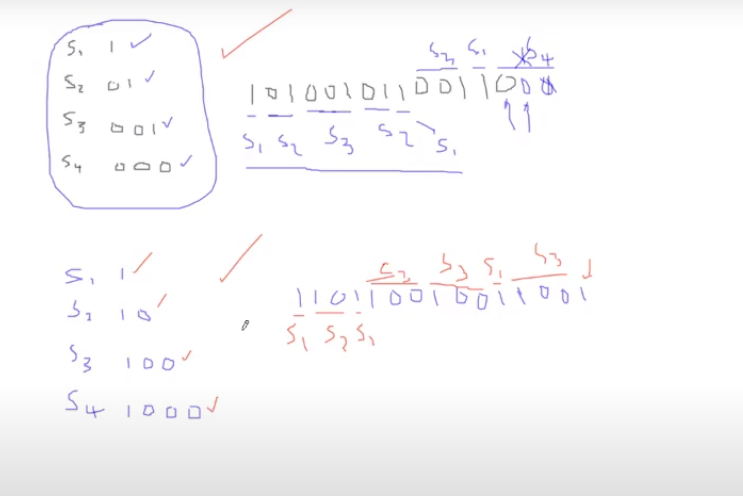 S₁ 1
S₂ 01
S₃ 001
S₄ 000
S₃ S₁ S₄
1010010110011000
S₁ S₂ S₃ S₂ S₁
S₁ 1
S₂ 10
S₃ 100
S₄ 1000
S₃ S₃ S₁ S₃
110110010011001
S₁ S₂ S₁